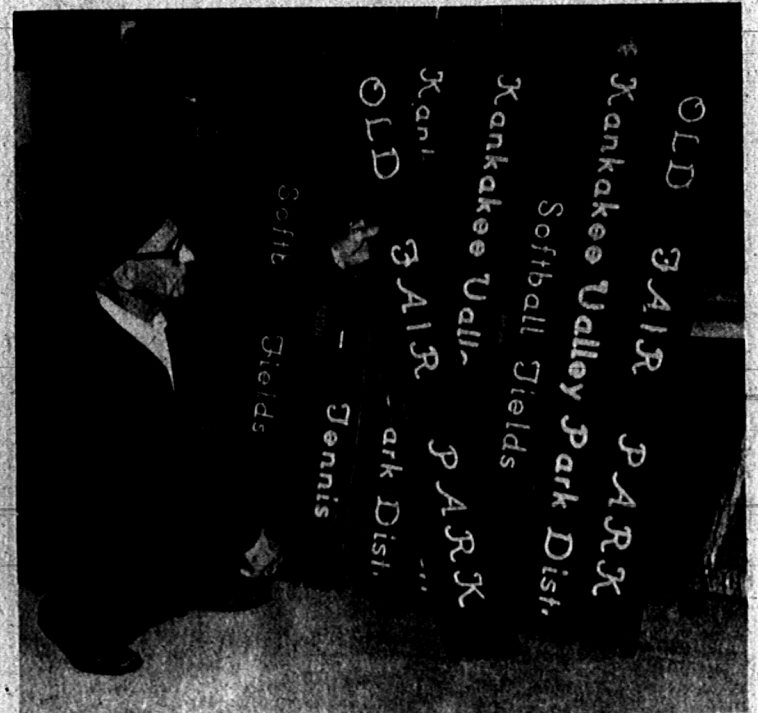 OLD FAIR PARK
Kankakee Valley Park Dist.
Softball Fields
Kankakee Vall
OLD FAIR PARK
ark Dist.
Tennis
Softb Fields